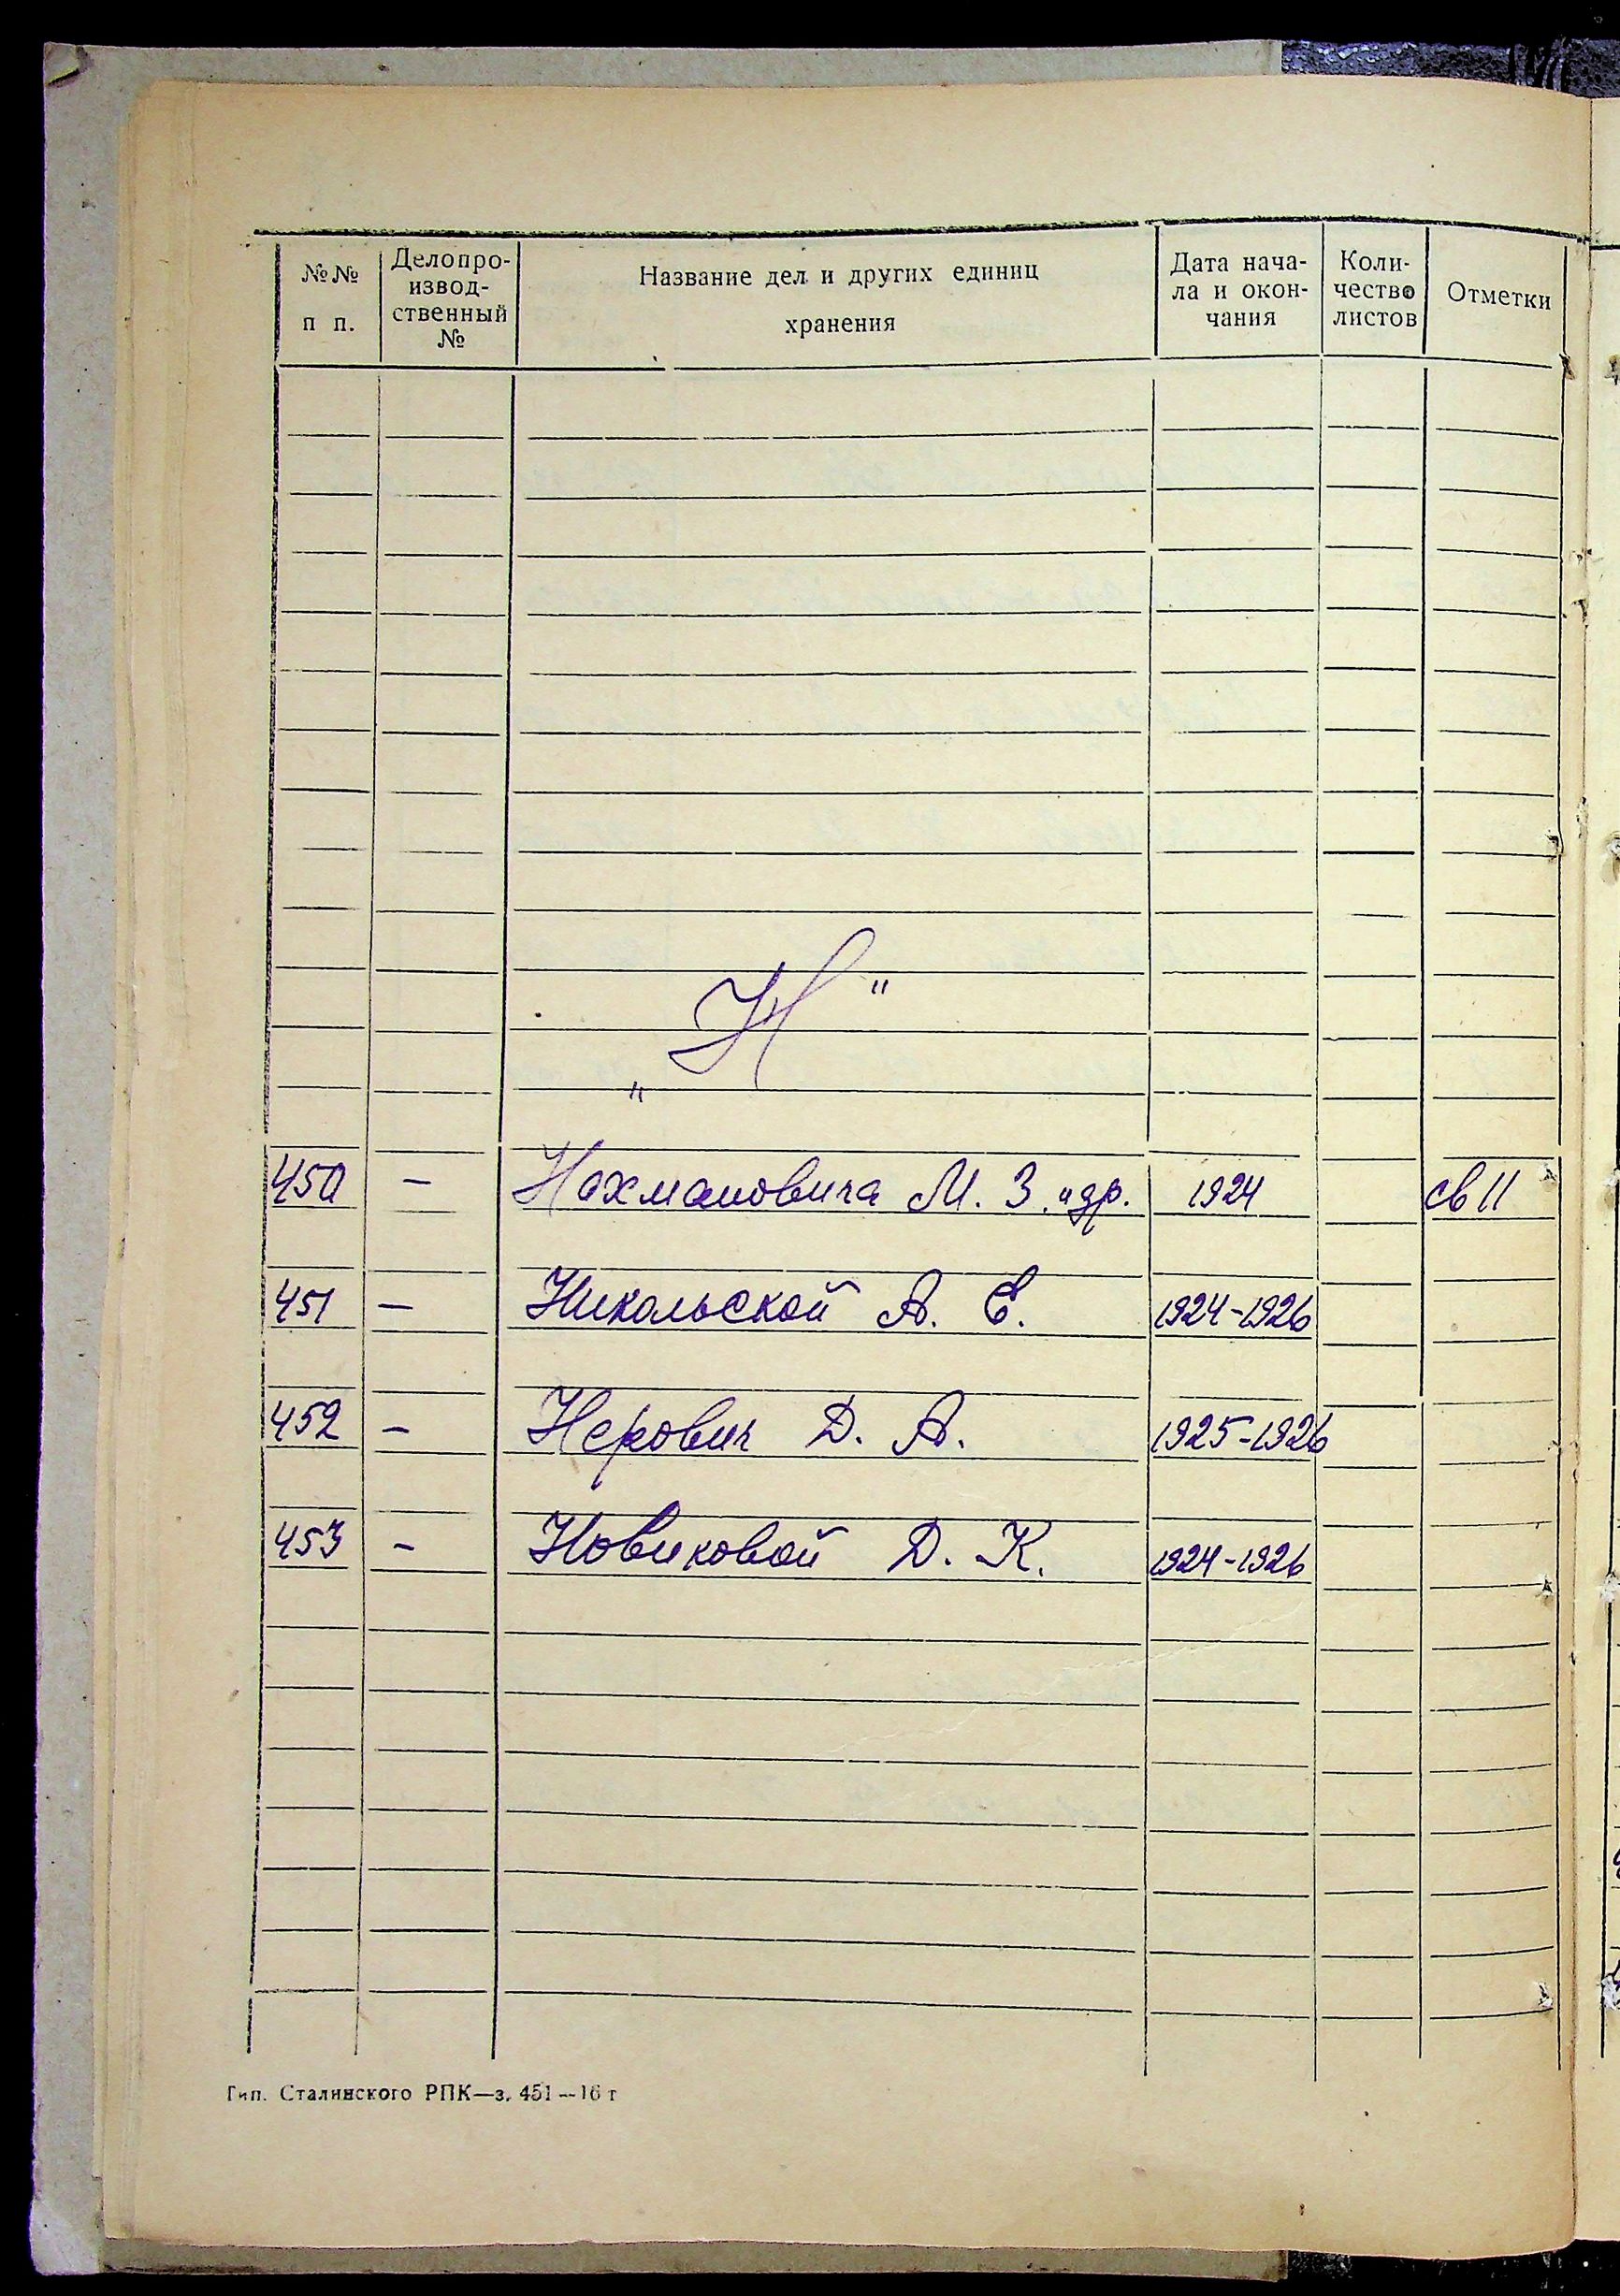 №№ п п.
Делопро-
извод-
ственный
№
Название дел и других единиц
хранения
Дата нача-
ла и окон-
чания
Коли-
чество
листов
Отметки
„Н"
450 — Нахмановича М. З. и др. 1924 св 11
451 — Никольской А. Е. 1924-1926
452 — Нерович Д. А. 1925-1926
453 — Новиковой Д. К. 1924-1926
Тип. Сталинского РПК—з. 451—16 т